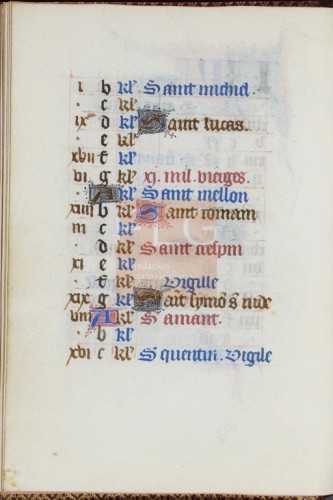 i b kl' Saint michel.
c kl'
ix d kl' Saint lucas.
e kl'
xvii f kl'
vi g kl' xi. mil. vierges.
A kl' Saint mellon
xiiii b kl' Saint romain
iii c kl'
d kl' Saint crespin
xi e kl'
f kl' Vigille
xix g kl' Sait symo s iude
viii A kl' S amant.
b kl'
xvi c kl' S quentin. Vigile